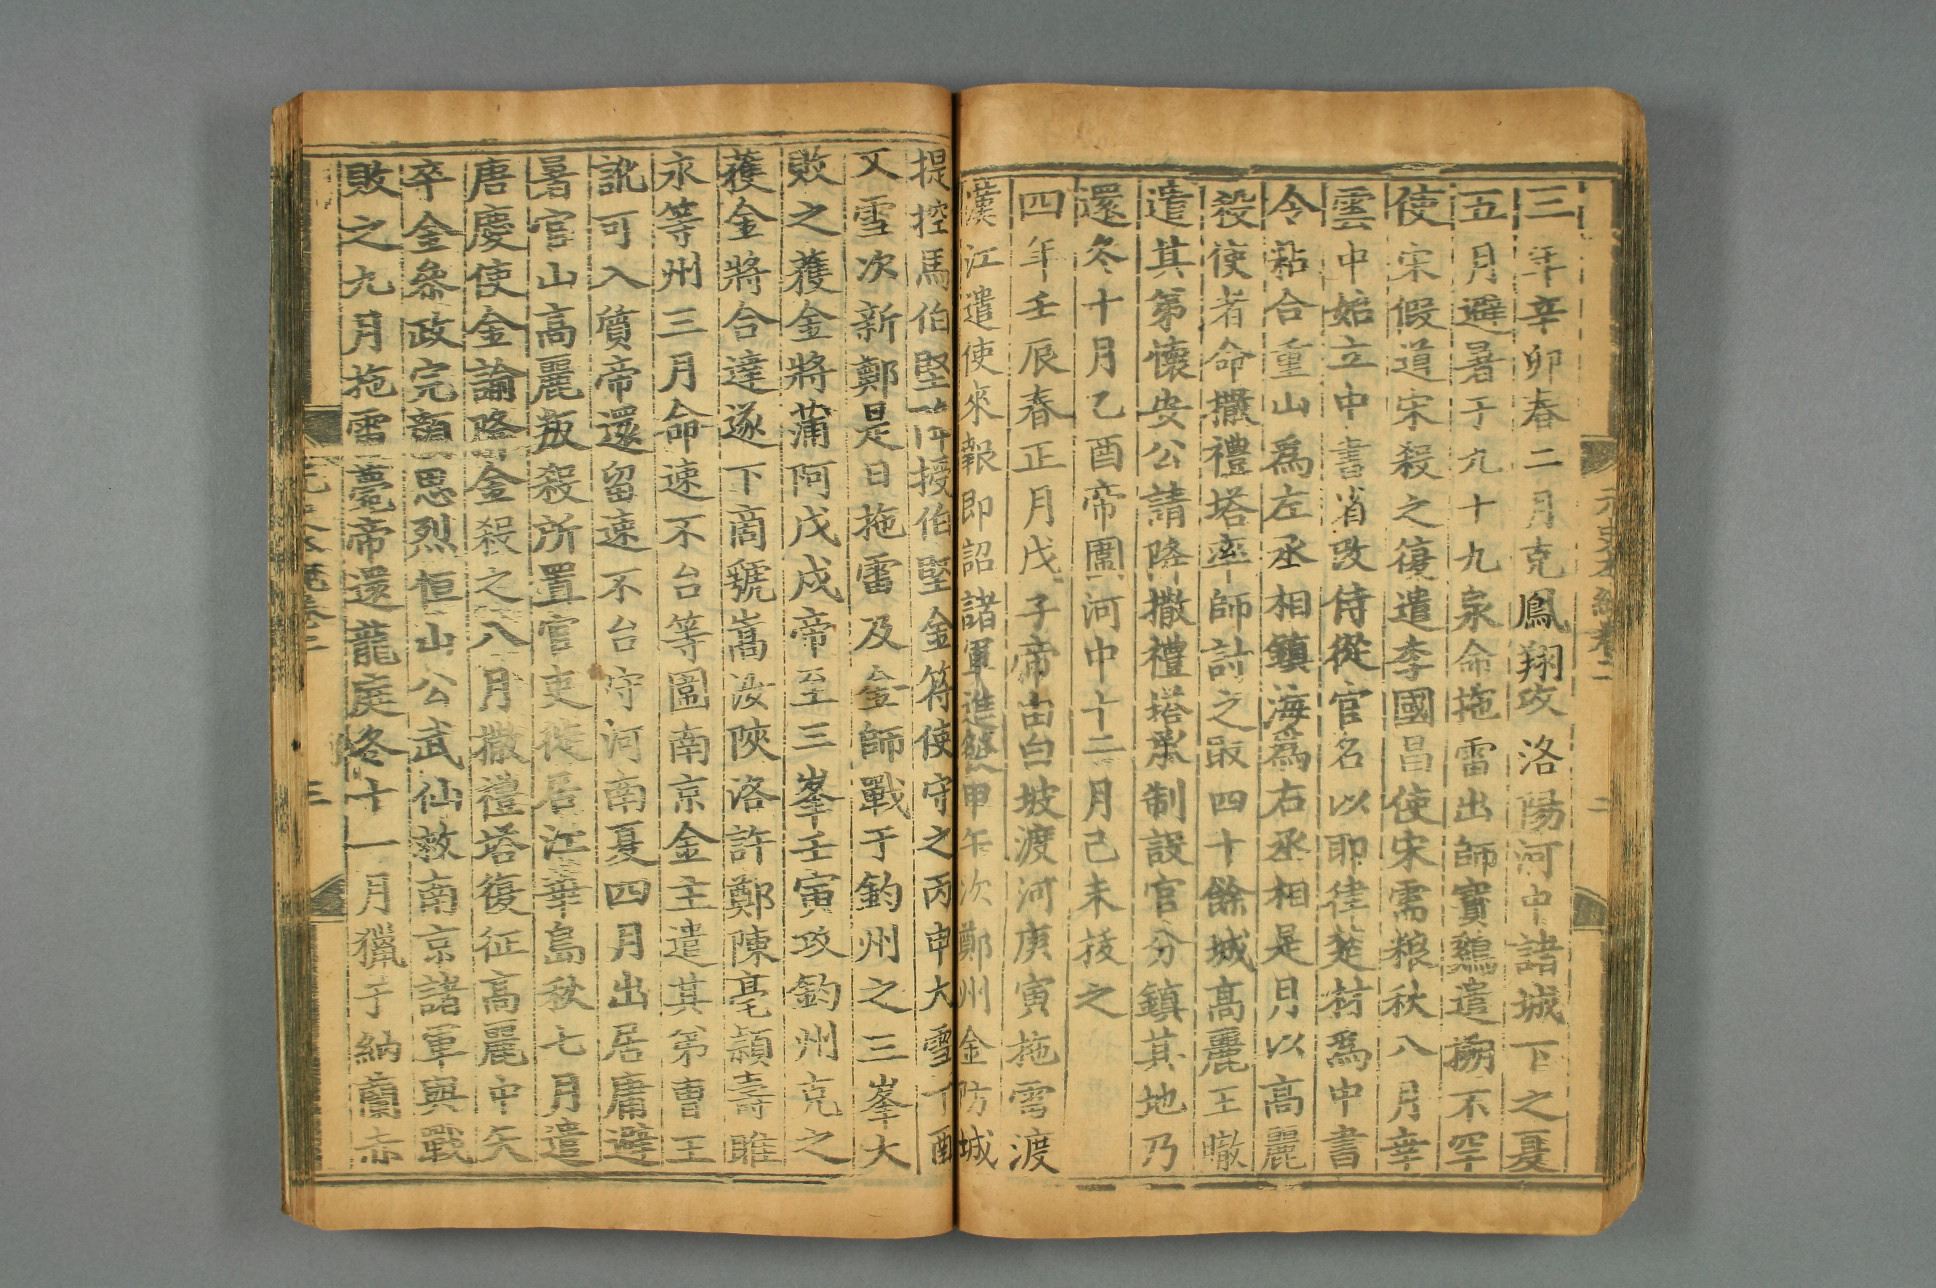 元史本紀卷二 二
三年辛卯春二月克鳳翔攻洛陽河中諸城下之夏
五月避暑于九十九泉命拖雷出師寶雞遣搠不罕
使宋假道宋殺之復遣李國昌使宋需粮秋八月幸
雲中始立中書省改侍從官名以耶律楚材為中書
令粘合重山為左丞相鎮海為右丞相是月以高麗
殺使者命撒禮塔率師討之取四十餘城高麗王㬚
遣其弟懷安公請降撒禮塔承制設官分鎮其地乃
還冬十月乙酉帝圍河中十二月己未拔之
四年壬辰春正月戊子帝由白坡渡河庚寅拖雷渡
漢江遣使來報即詔諸軍進發甲午次鄭州金防城
提控馬伯堅降授伯堅金符使守之丙申大雪丁酉
又雪次新鄭是日拖雷及金師戰于鈞州之三峯大
敗之獲金將蒲阿戊戌帝至三峯壬寅攻鈞州克之
獲金將合達遂下商虢嵩汝陝洛許鄭陳亳潁壽睢
永等州三月命速不台等圍南京金主遣其弟曹王
訛可入質帝還留速不台守河南夏四月出居庸避
暑官山高麗叛殺所置官吏徙居江華島秋七月遣
唐慶使金諭降金殺之八月撒禮塔復征高麗中矢
卒金參政完顏思烈恒山公武仙救南京諸軍與戰
敗之九月拖雷薨帝還龍庭冬十一月獵于納蘭赤
元史本紀卷二 三